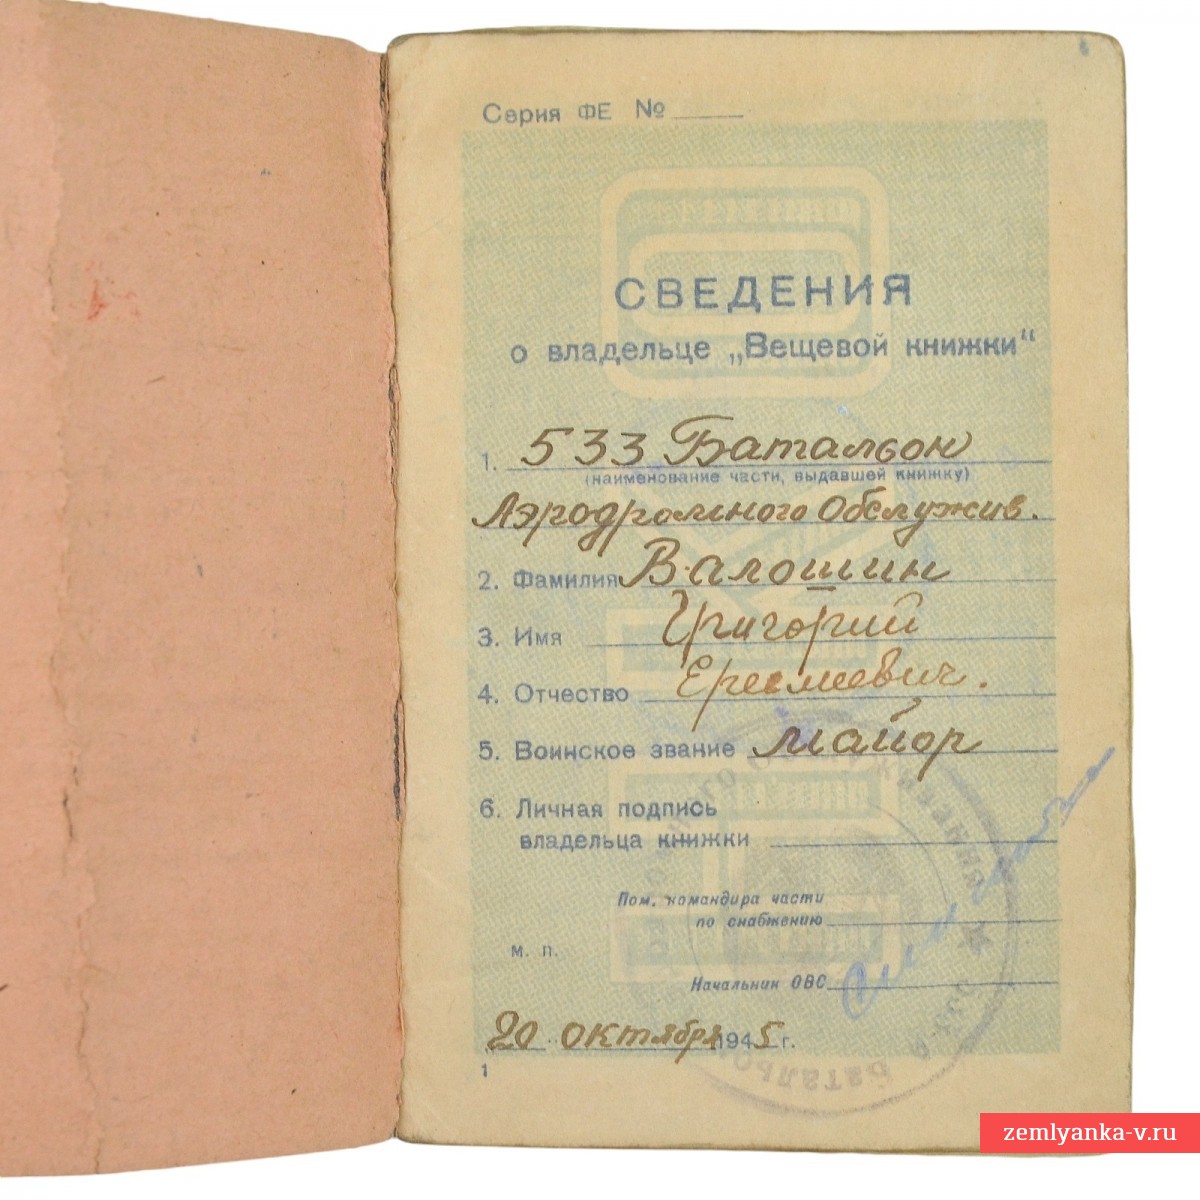 Серия ФЕ № ____
СВЕДЕНИЯ
о владельце „Вещевой книжки“
1. 533 Батальон
(наименование части, выдавшей книжку)
Аэродромного Обслужив.
2. Фамилия Валошин
3. Имя Григорий
4. Отчество Еремеевич.
5. Воинское звание майор
6. Личная подпись
владельца книжки
Пом. командира части
по снабжению
м. п.
Начальник ОВС
20 октября 1945 г.
1
батальон
zemlyanka-v.ru